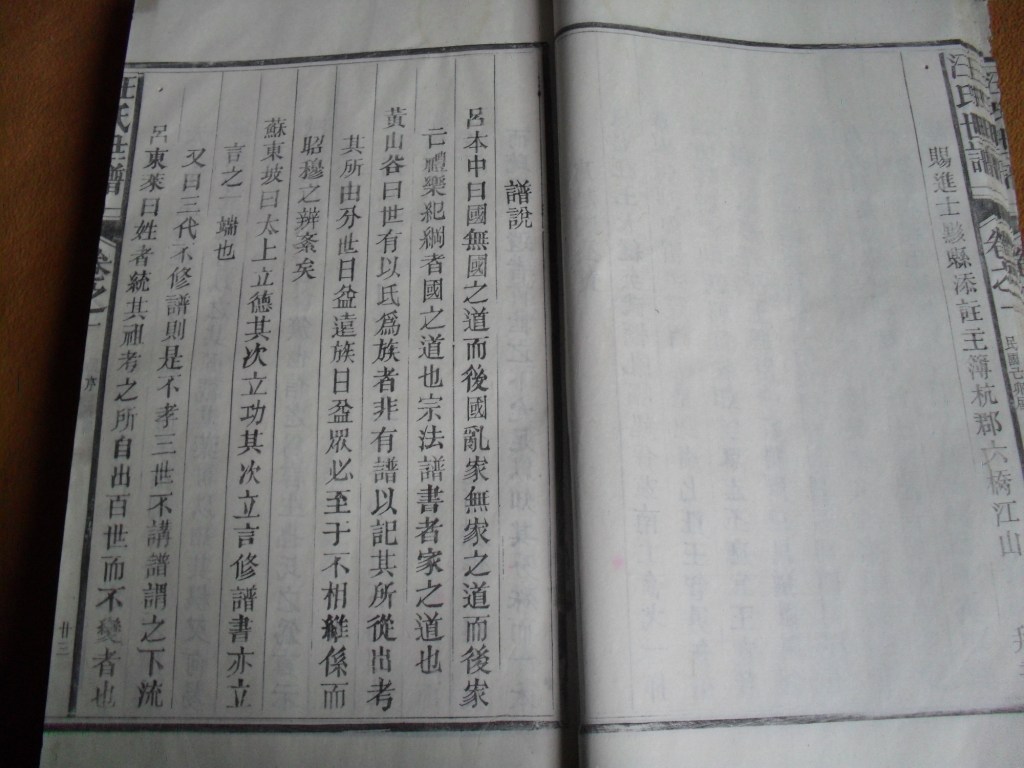 汪氏世譜
卷之一
賜進士黟縣添註主簿杭郡六橋江山
譜說
呂本中曰國無國之道而後國亂家無家之道而後家
亡禮樂紀綱者國之道也宗法譜書者家之道也
黃山谷曰世有以氏爲族者非有譜以記其所從出考
其所由分世日益遠族日益眾必至于不相維係而
昭穆之辨紊矣
蘇東坡曰太上立德其次立功其次立言修譜書亦立
言之一端也
又曰三代不修譜則是不孝三世不講譜謂之下流
呂東萊曰姓者統其祖考之所自出百世而不變者也
汪氏世譜
卷之一
序
廿三